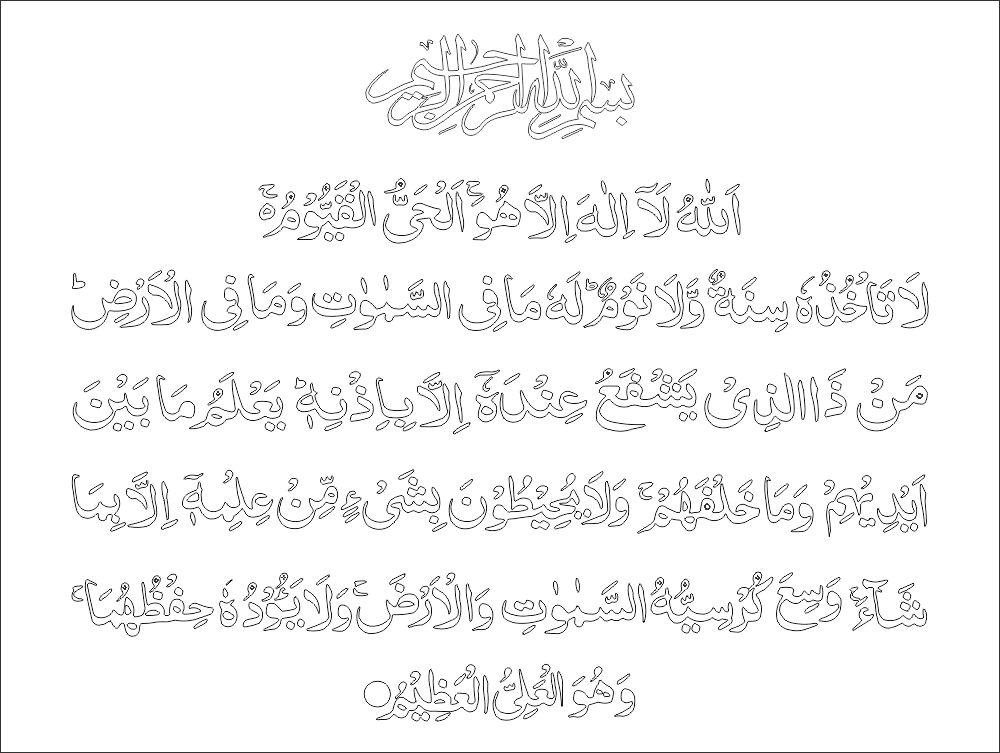 بسم الله الرحمن الرحيم
اَللّٰهُ لَاۤ اِلٰهَ اِلَّا هُوَۚ اَلْحَىُّ الْقَيُّوْمُ ۚ
لَا تَاْخُذُهٗ سِنَةٌ وَّلَا نَوْمٌ ؕ لَهٗ مَا فِى السَّمٰوٰتِ وَمَا فِى الْاَرْضِ ؕ
مَنْ ذَا الَّذِىْ يَشْفَعُ عِنْدَهٗۤ اِلَّا بِاِذْنِهٖ ؕ يَعْلَمُ مَا بَيْنَ
اَيْدِيْهِمْ وَمَا خَلْفَهُمْ ۚ وَلَا يُحِيْطُوْنَ بِشَىْءٍ مِّنْ عِلْمِهٖۤ اِلَّا بِمَا
شَآءَ ۚ وَسِعَ كُرْسِيُّهُ السَّمٰوٰتِ وَالْاَرْضَ ۚ وَلَا يَـُٔوْدُهٗ حِفْظُهُمَا ۚ
وَهُوَ الْعَلِىُّ الْعَظِيْمُ